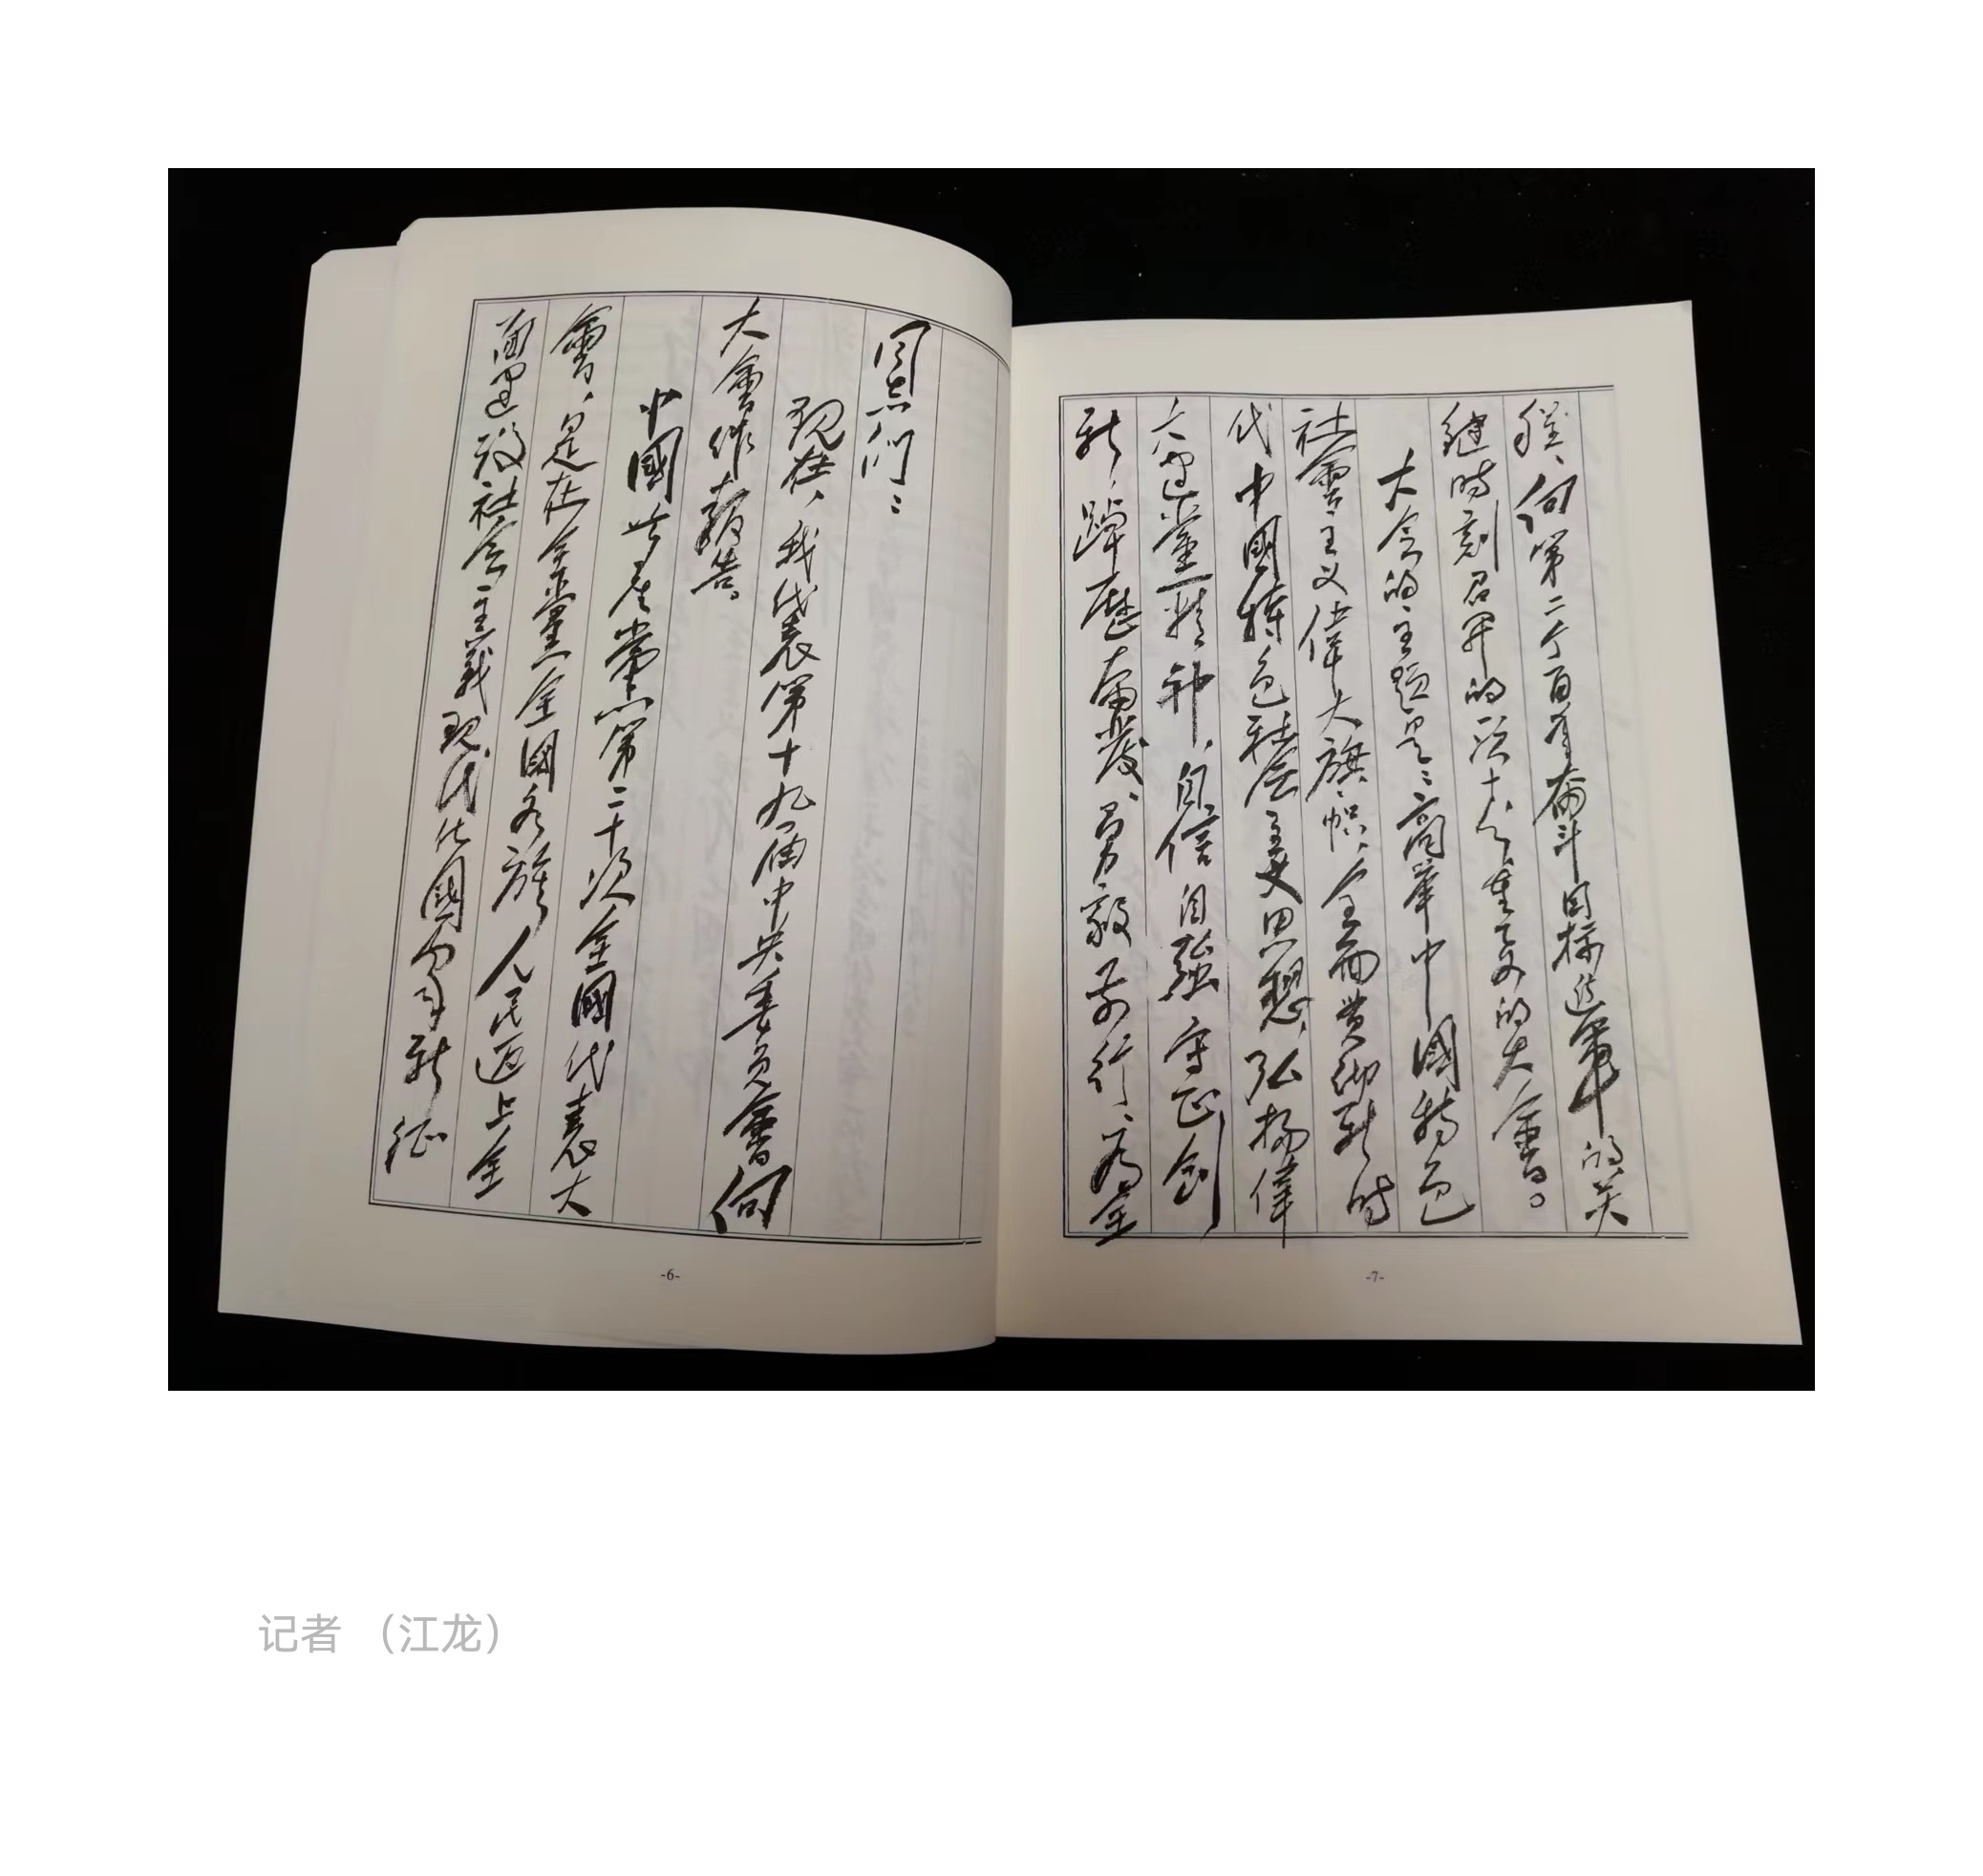 同志們：
现在，我代表第十九届中央委员會向
大會作報告。
中國共产党第二十次全國代表大
會，是在全黨全國各族人民迈上全
面建设社会主義现代化國家新征
程、向第二个百年奋斗目标进軍的关
鍵时刻召开的一次十分重要的大會。
大会的主题是：高举中國特色
社會主义偉大旗帜，全面贯彻新时
代中國特色社会主义思想，弘扬偉
大建黨精神，自信自强、守正创
新，踔厲奮發、勇毅前行，为全
-6-
-7-
记者 （江龙）